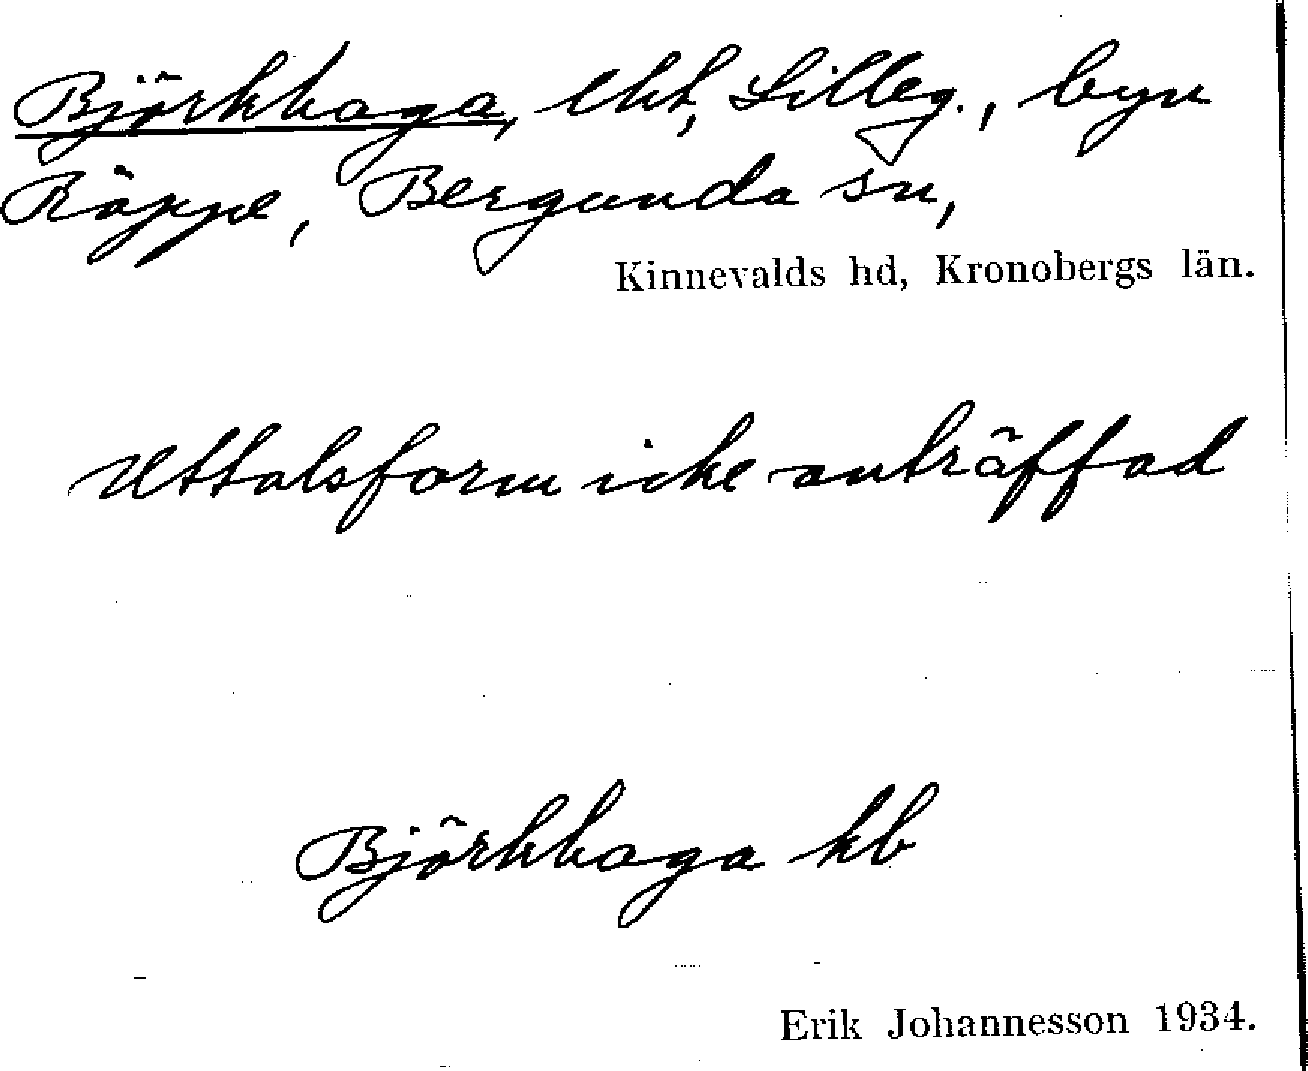 Björkhaga, lht, Lilleg., byn
Räppe, Bergunda sn,
Kinnevalds hd, Kronobergs län.
Uttalsform icke anträffad
Björkhaga kb
Erik Johannesson 1934.